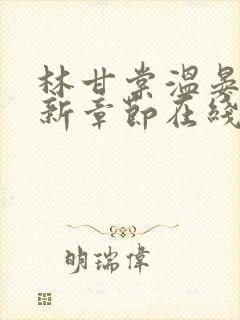 林甘棠溫晏
新章節在綫
明瑞偉